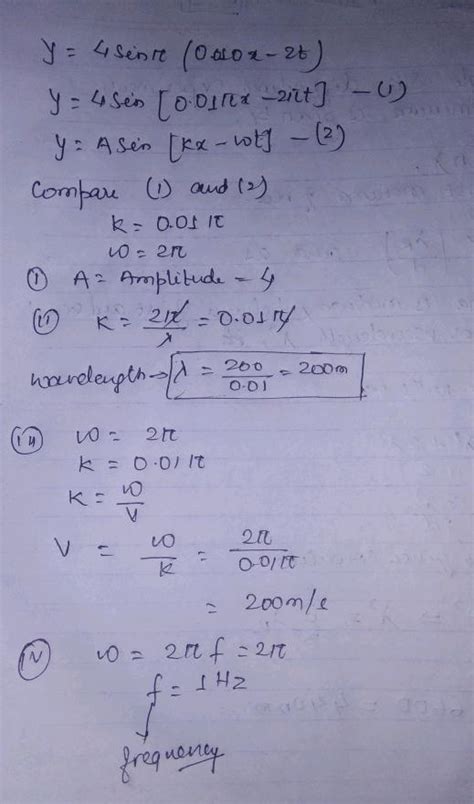 y = 4 sin π (0.010x - 2t)
y = 4 sin [0.01πx - 2πt] - (1)
y = A sin [kx - ωt] - (2)
Compare (1) and (2)
k = 0.01π
ω = 2π
(i) A = Amplitude = 4
(ii) k = 2π/λ = 0.01π
wavelength → λ = 200/0.01 = 200m
(iii) ω = 2π
k = 0.01π
k = ω/V
V = ω/k = 2π/0.01π
= 200m/s
(iv) ω = 2πf = 2π
f = 1 Hz
frequency